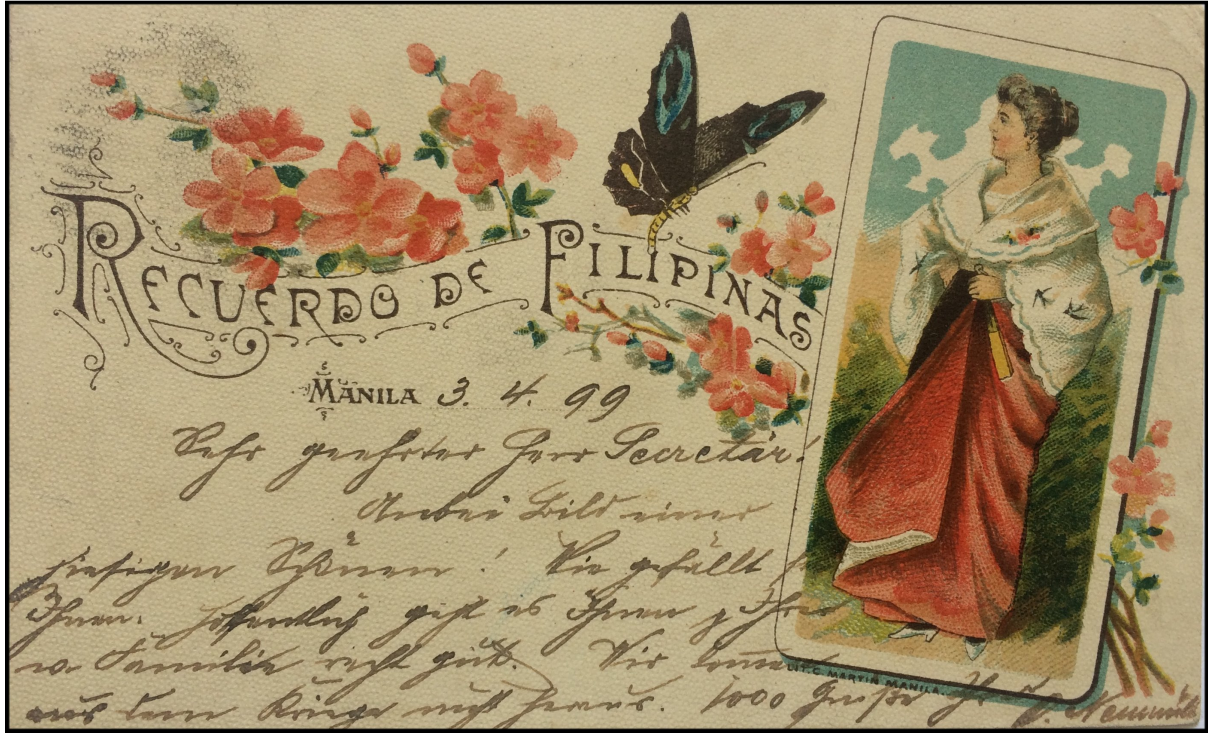 RECUERDO DE FILIPINAS
MANILA 3. 4. 99
Sehr geehrter Herr Secretär!
Anbei Bild einer
hiesigen Schönen! Wie gefällt
Ihnen. Hoffentlich geht es Ihnen
w. Familie recht gut. Wir kommen
aus dem Kriege nicht heraus. 1000 Grüße Ihr
LIT. C. MARTIN MANILA.